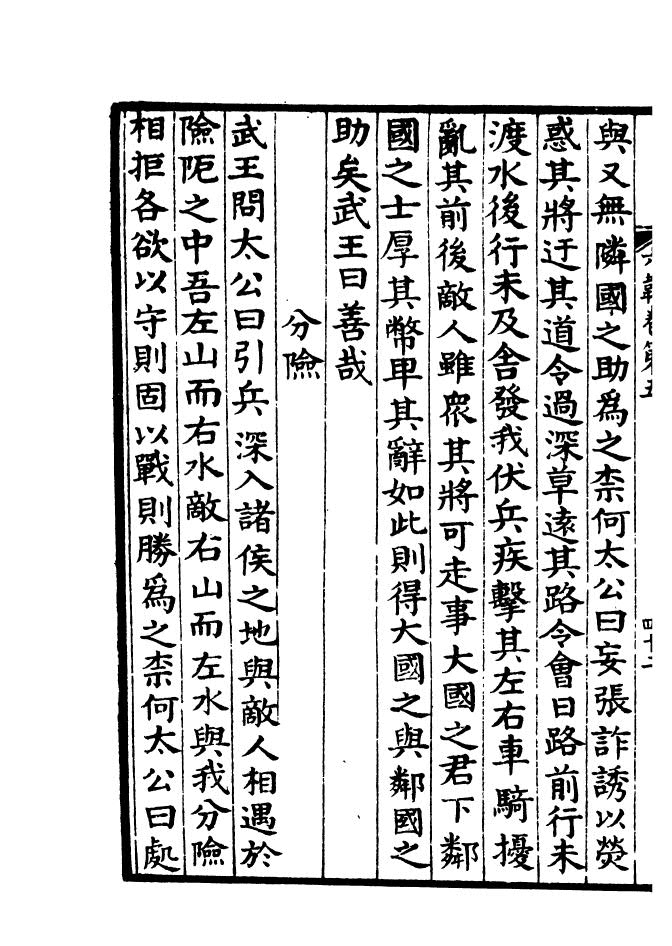 六韜卷第五
四十二
與又無隣國之助爲之柰何太公曰妄張詐誘以熒
惑其將迂其道令過深草遠其路令會日路前行未
渡水後行未及舍發我伏兵疾擊其左右車騎擾
亂其前後敵人雖衆其將可走事大國之君下鄰
國之士厚其幣卑其辭如此則得大國之與鄰國之
助矣武王曰善哉
分險
武王問太公曰引兵深入諸侯之地與敵人相遇於
險阨之中吾左山而右水敵右山而左水與我分險
相拒各欲以守則固以戰則勝爲之柰何太公曰處